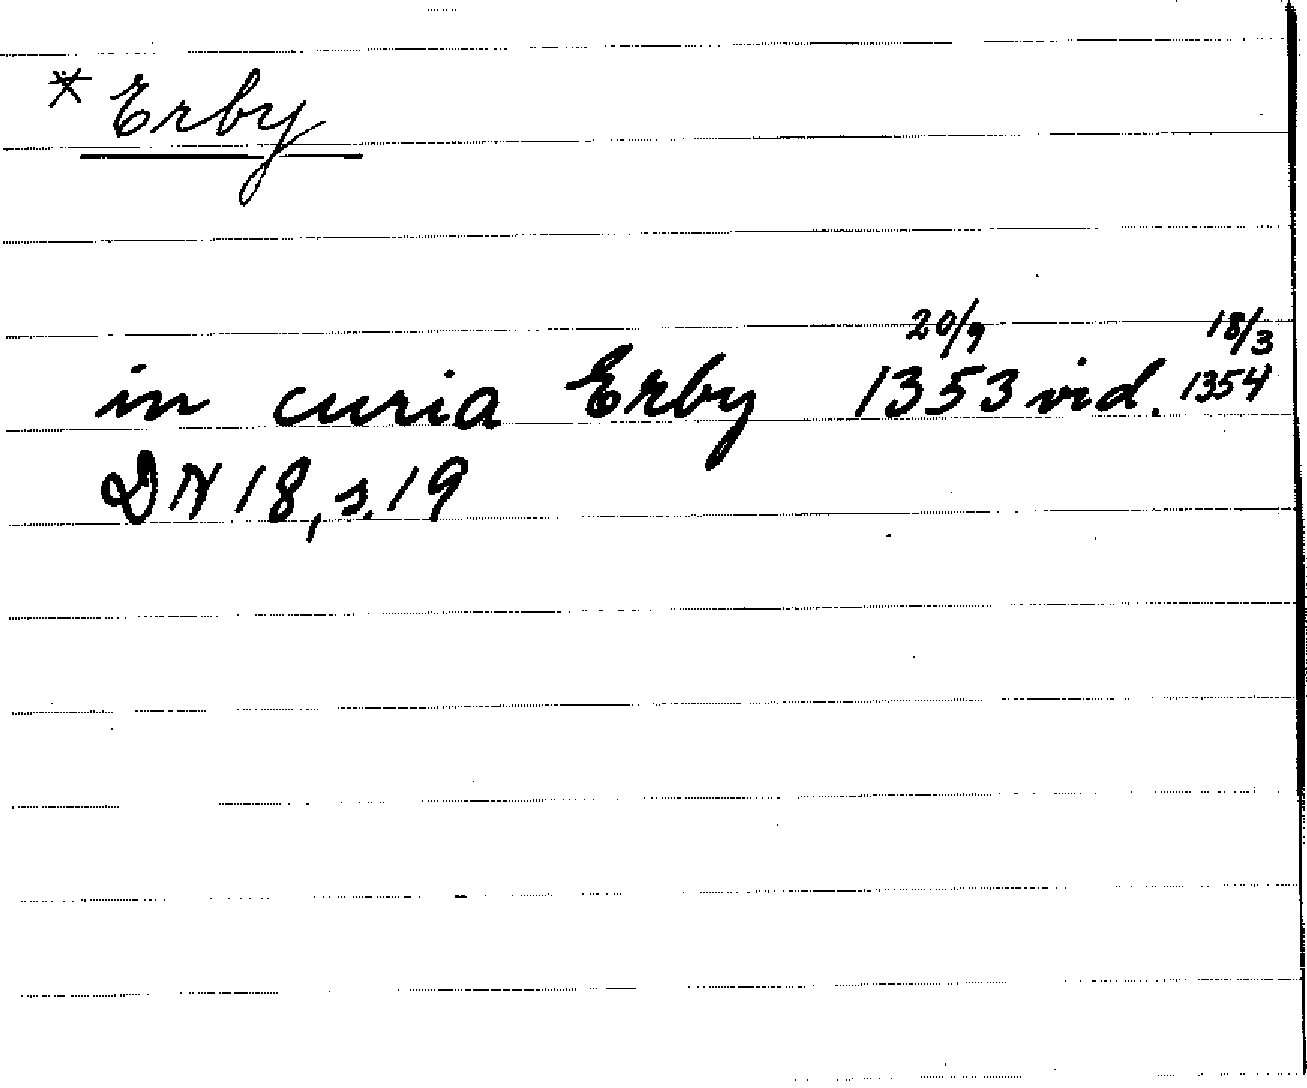 * Erby
in curia Erby 20/9 1353 vid. 18/3 1354
DN 18, s. 19